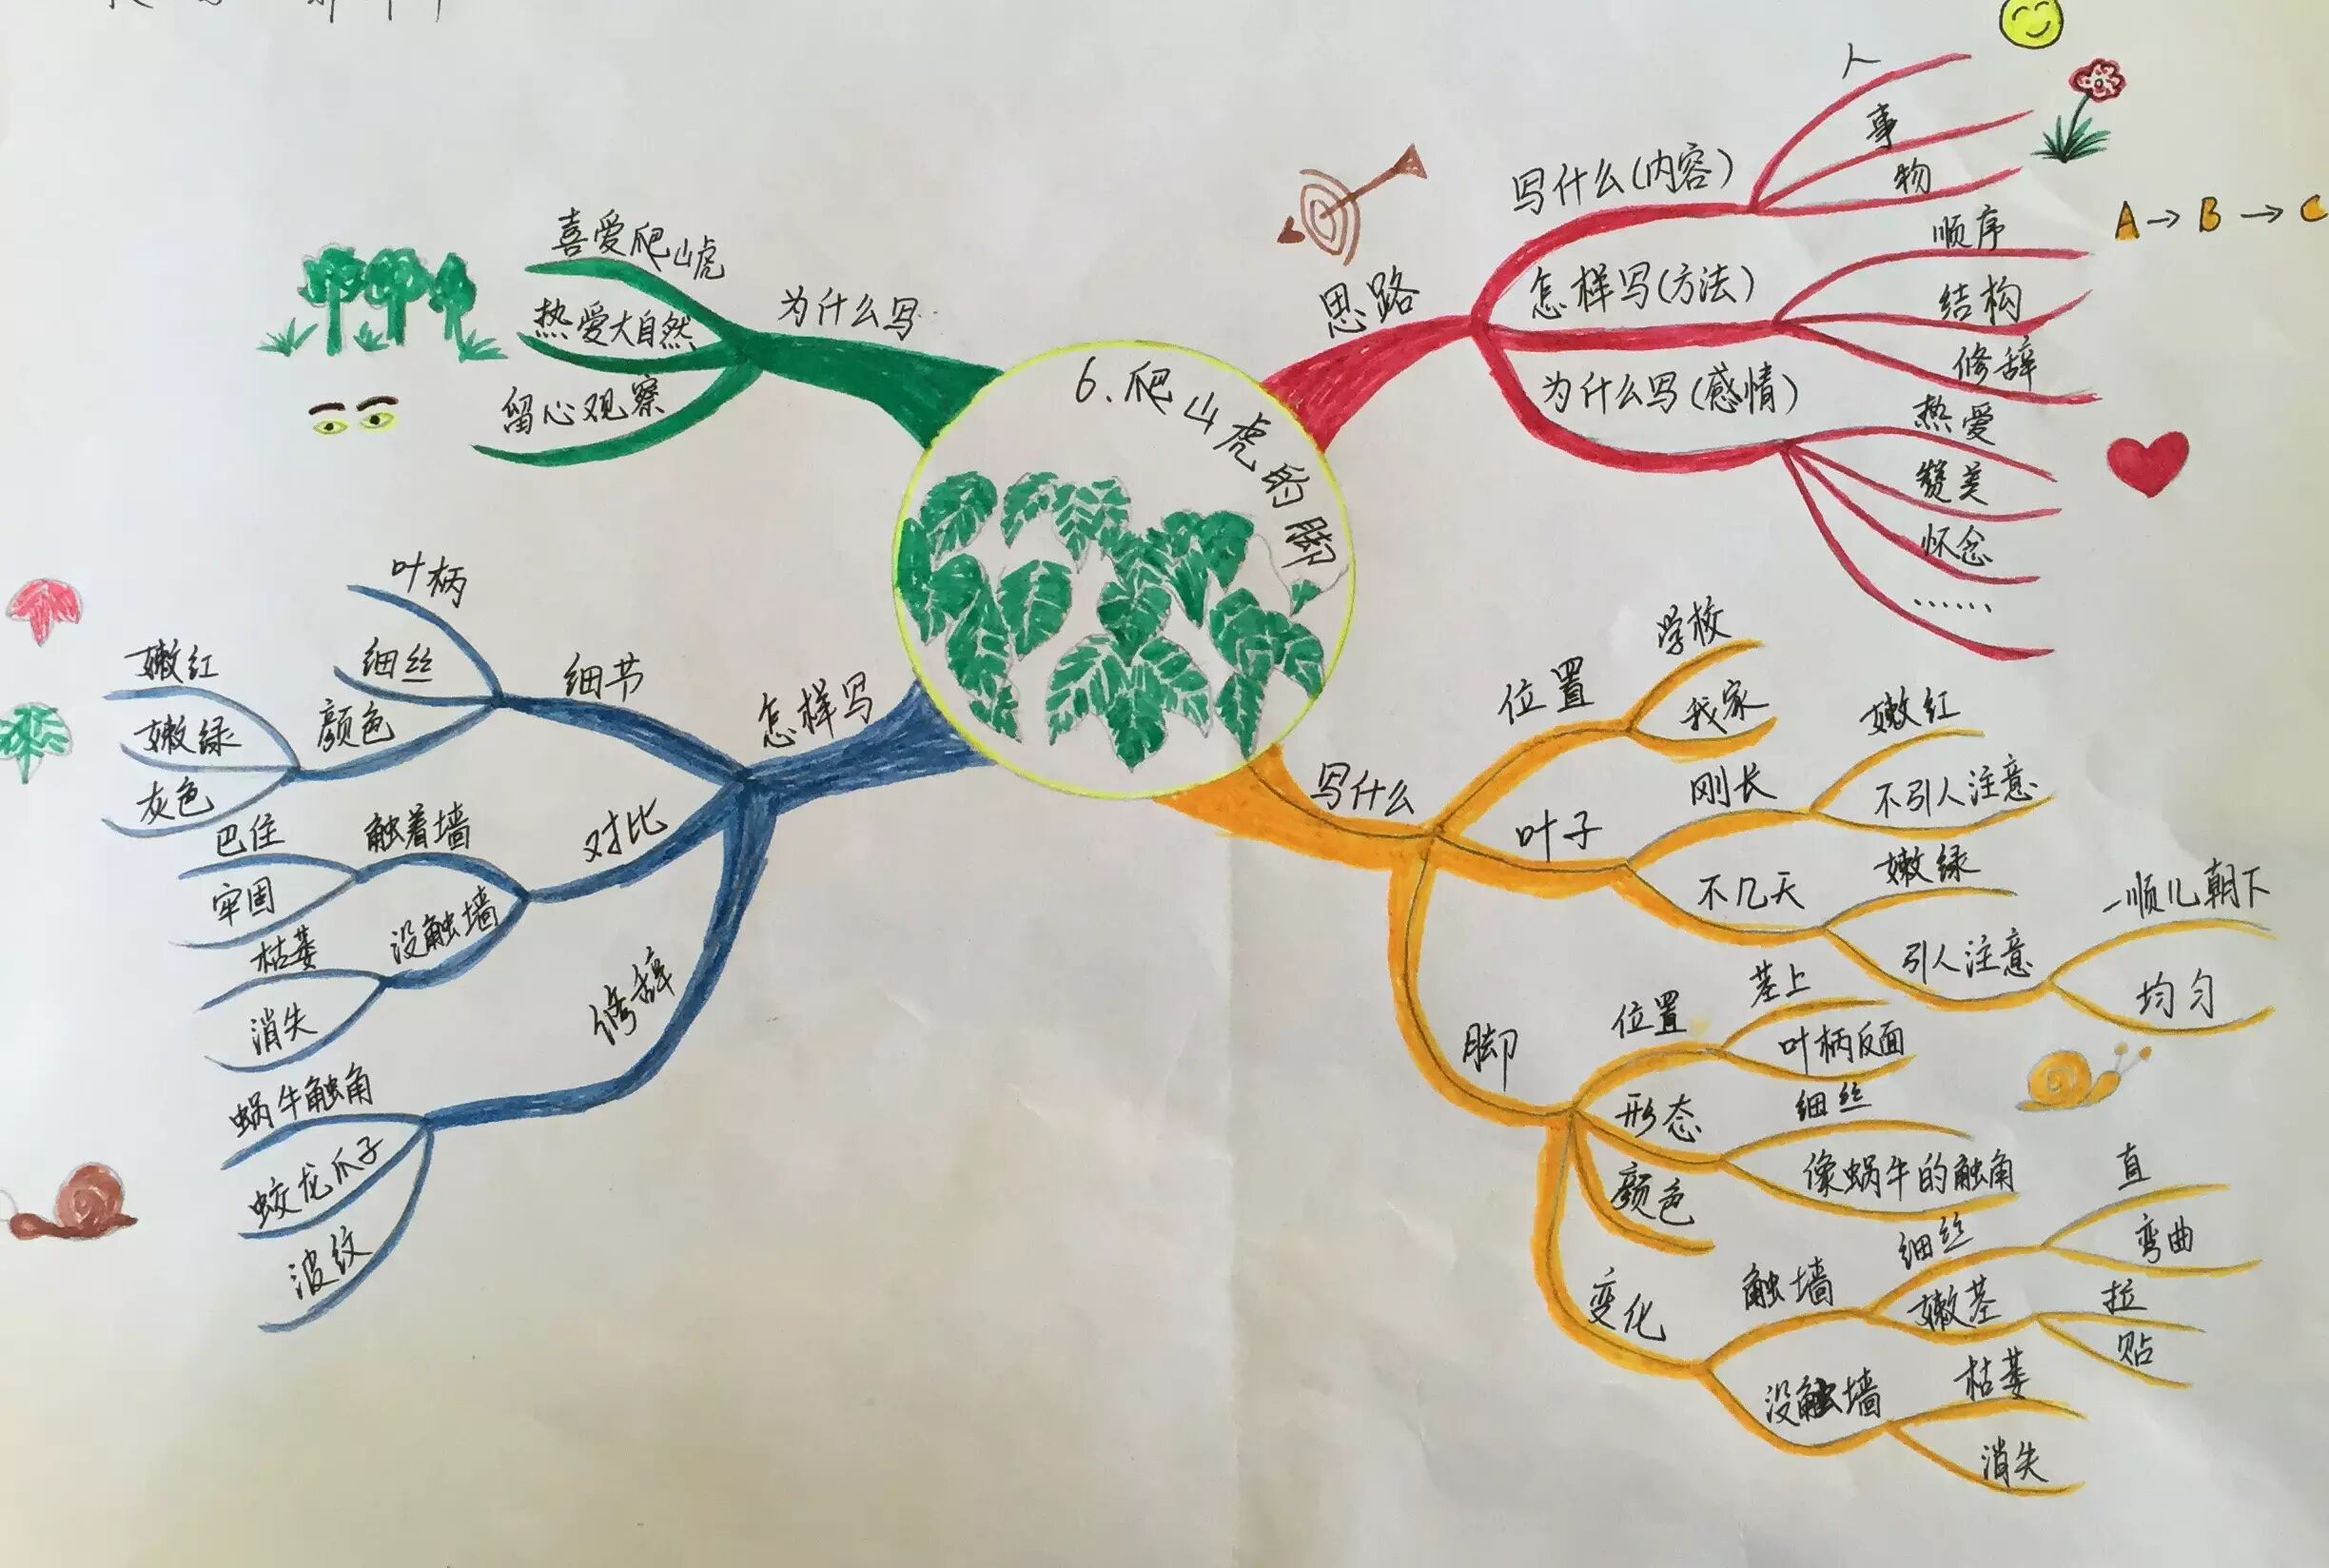 6.爬山虎的脚
思路
写什么(内容)
人
事
物
怎样写(方法)
顺序
A→B→C
结构
修辞
为什么写(感情)
热爱
赞美
怀念
……
写什么
位置
学校
我家
叶子
刚长
嫩红
不引人注意
不几天
嫩绿
引人注意
一顺儿朝下
均匀
脚
位置
茎上
叶柄反面
形态
细丝
像蜗牛的触角
颜色
变化
触墙
细丝
直
弯曲
嫩茎
拉
贴
没触墙
枯萎
消失
怎样写
细节
叶柄
细丝
颜色
嫩红
嫩绿
灰色
对比
触着墙
巴住
牢固
没触墙
枯萎
消失
修辞
蜗牛触角
蛟龙爪子
波纹
为什么写
喜爱爬山虎
热爱大自然
留心观察